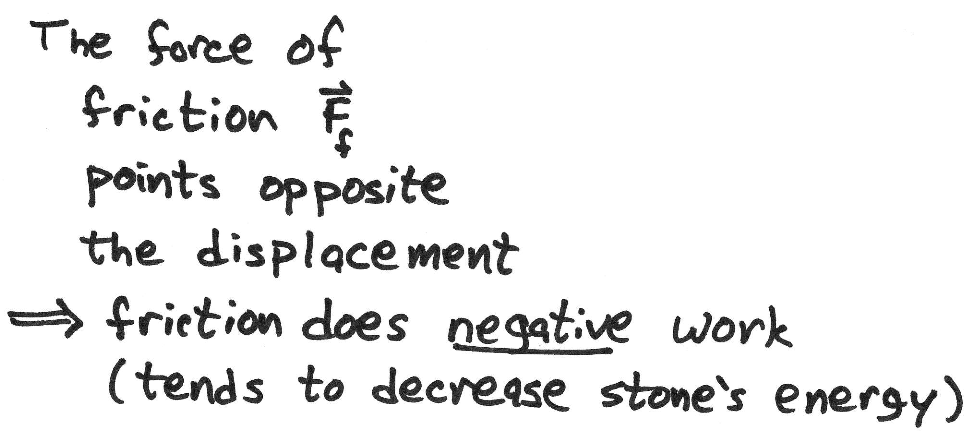 The force of
friction F⃗_f
points opposite
the displacement
⟹ friction does negative work
(tends to decrease stone's energy)